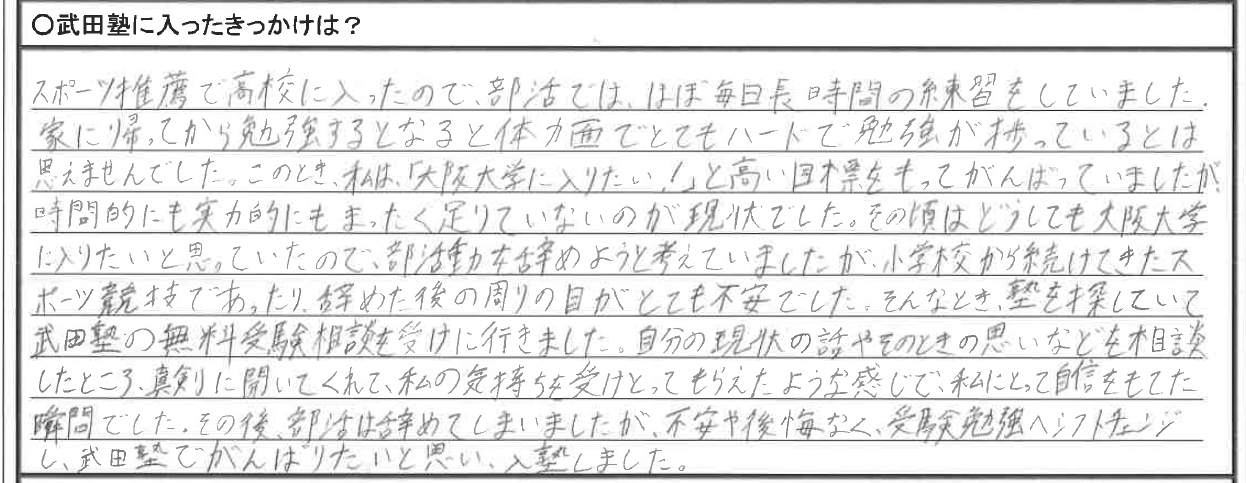 〇武田塾に入ったきっかけは？
スポーツ推薦で高校に入ったので、部活では、ほぼ毎日長時間の練習をしていました。
家に帰ってから勉強するとなると体力面でとてもハードで勉強が捗っているとは
思えませんでした。このとき、私は、「大阪大学に入りたい！」と高い目標をもってがんばっていましたが、
時間的にも実力的にもまったく足りていないのが現状でした。その頃はどうしても大阪大学
に入りたいと思っていたので、部活動を辞めようと考えていましたが、小学校から続けてきたス
ポーツ競技であったり、辞めた後の周りの目がとても不安でした。そんなとき、塾を探していて
武田塾の無料受験相談を受けに行きました。自分の現状の話やそのときの思いなどを相談
したところ、真剣に聞いてくれて、私の気持ちを受けとってもらえたような感じで、私にとって自信をもてた
瞬間でした。その後、部活は辞めてしまいましたが、不安や後悔なく、受験勉強へシフトチェンジ
し、武田塾でがんばりたいと思い、入塾しました。